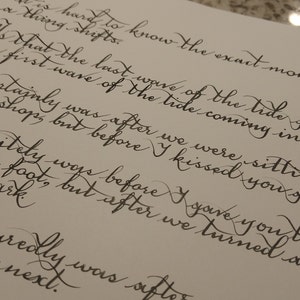 is hard to know the exact mo
a thing shifts.
s that the last wave of the tide
first wave of the tide coming in
tainly was after we were sitti
shop, but before I kissed you
ately was before I gave you
foot, but after we turned
ark.
uredly was after
next.